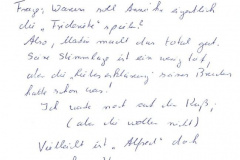 Frage: Warum soll Annika eigentlich
die „Friederike" spielen?
Also, Martin macht das total gut.
Seine Stimmlage ist ein wenig tief,
aber die „Liebeserklärung" seines Bruders
hatte schon was!
Ich warte noch auf den Kuß;
(aber die wollen nicht)
Vielleicht ist „Alfred" doch